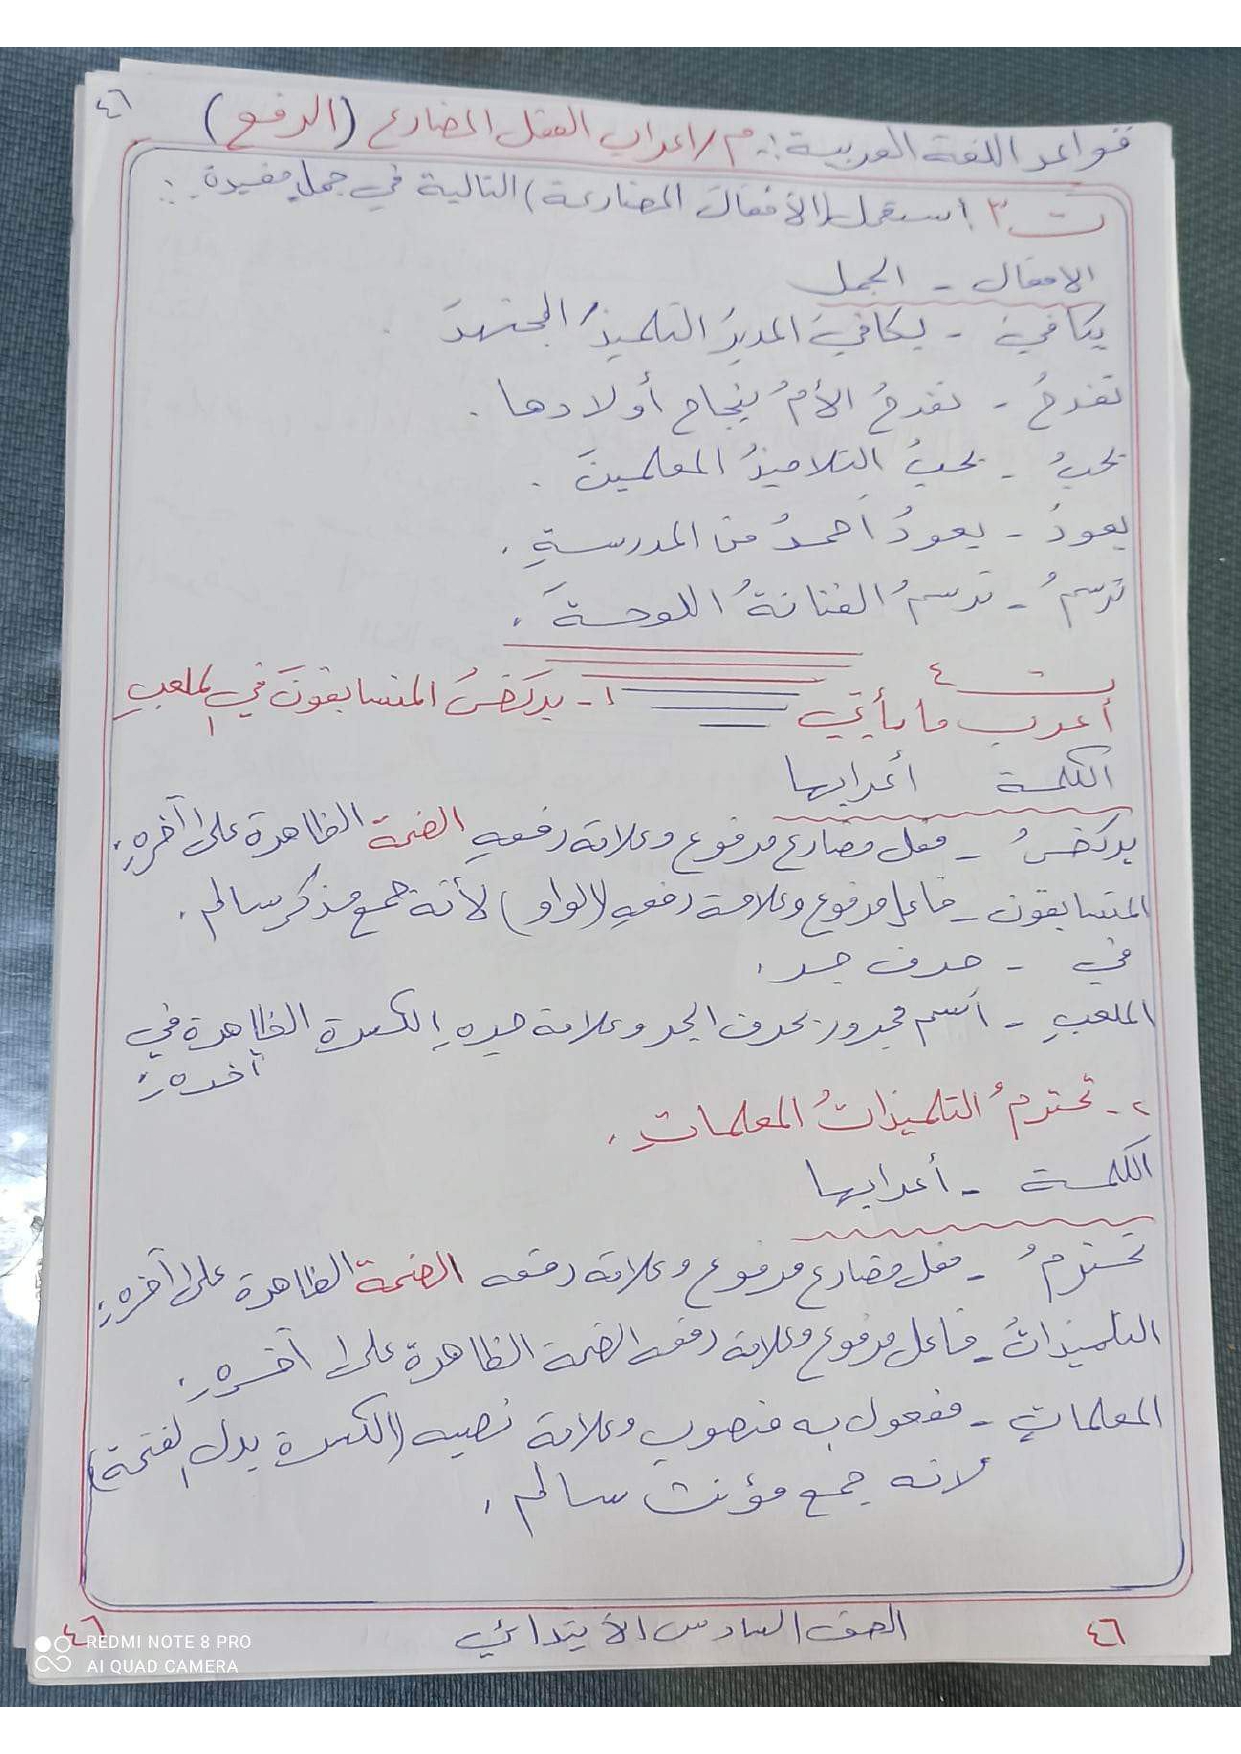 ٤٦
قواعد اللغة العربية :. م/اعراب الفعل المضارع (الرفع)
ت٣ استعمل (الأفعال المضارعة) التالية في جمل مفيدة :.
الافعال - الجمل
يكافئ - يكافئ المديرُ التلميذَ المجتهدَ .
تفرحُ - تفرحُ الأمُ بنجاح أولادها .
يحبُ - يحبُ التلاميذُ المعلمينَ .
يعودُ - يعودُ أحمدُ من المدرسةِ .
ترسمُ - ترسمُ الفنانةُ اللوحةَ .
ت٤
أعرب ما يأتي ١- يركضُ المتسابقونَ في الملعبِ
الكلمة أعرابها
يركضُ - فعل مضارع مرفوع وعلامة رفعهِ الضمة الظاهرة على آخرهِ.
المتسابقون - فاعل مرفوع وعلامة رفعهِ (الواو) لأنهُ جمع مذكر سالم .
في - حرف جر .
الملعبِ - أسم مجرور بحرف الجر وعلامة جرهِ الكسرة الظاهرة في
آخرهِ.
٢- تحترمُ التلميذاتُ المعلماتِ .
الكلمة - أعرابها
تحترمُ - فعل مضارع مرفوع وعلامة رفعه الضمة الظاهرة على آخرهِ.
التلميذاتُ - فاعل مرفوع وعلامة رفعه الضمة الظاهرة على آخرهِ.
المعلماتِ - مفعول به منصوب وعلامة نصبه (الكسرة بدل الفتحة)
لانه جمع مؤنث سالم .
٤٦
الصف السادس الأبتدائي
٤٦
REDMI NOTE 8 PRO
AI QUAD CAMERA